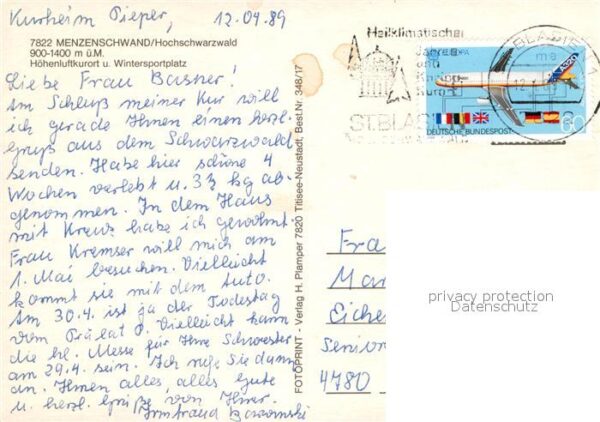 Kurheim Pieper, 12.04.89
7822 MENZENSCHWAND/Hochschwarzwald
900-1400 m ü.M.
Höhenluftkurort u. Wintersportplatz
Liebe Frau Basner!
Am Schluß meiner Kur will
ich gerade Ihnen einen herzl.
Gruß aus dem Schwarzwald
senden. Habe hier schöne 4
Wochen verlebt u. 3½ kg ab-
genommen. In dem Haus
mit Kreuz habe ich gewohnt.
Frau Kremser will mich am
1. Mai besuchen. Vielleicht
kommt sie mit dem Auto.
Am 30.4. ist ja der Todestag
vom Prälat P. Vielleicht kann
die hl. Messe für Ihre Schwester
am 29.4. sein. Ich rufe Sie dann
an. Ihnen alles, alles Gute
u. herzl. Grüße von Ihrer
Irmtraud
FOTOPRINT - Verlag H. Plamper 7820 Titisee-Neustadt, Best.Nr. 348/17
Heilklimatischer
Jahre
ST.BLAS
ST BLASIEN 1
EUROPA
A320
60
DEUTSCHE BUNDESPOST
Fra
Mar
Eiche
Senior
4780
privacy protection
Datenschutz